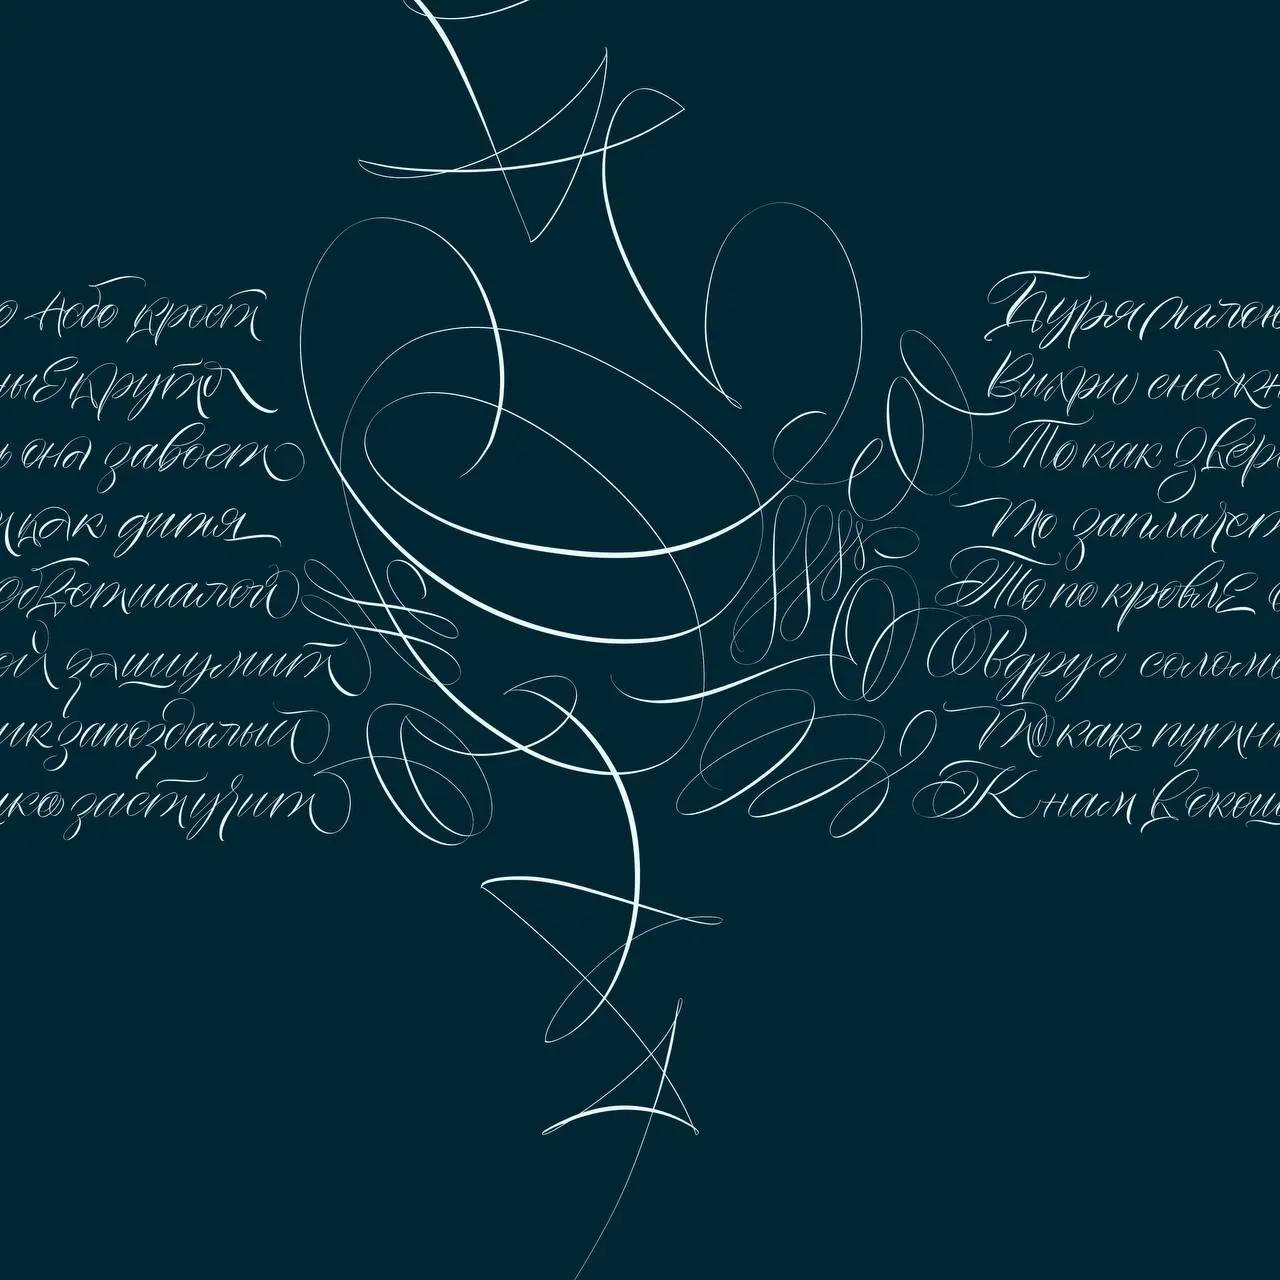 о небо кроет
ные крутя
ь она завоет
как дитя
обветшалой
ой зашумит
ик запоздалый
ко застучит
Буря мглою
Вихри снежн
То как звер
То заплачет
То по кровле о
Вдруг соломо
То как путни
К нам в окош